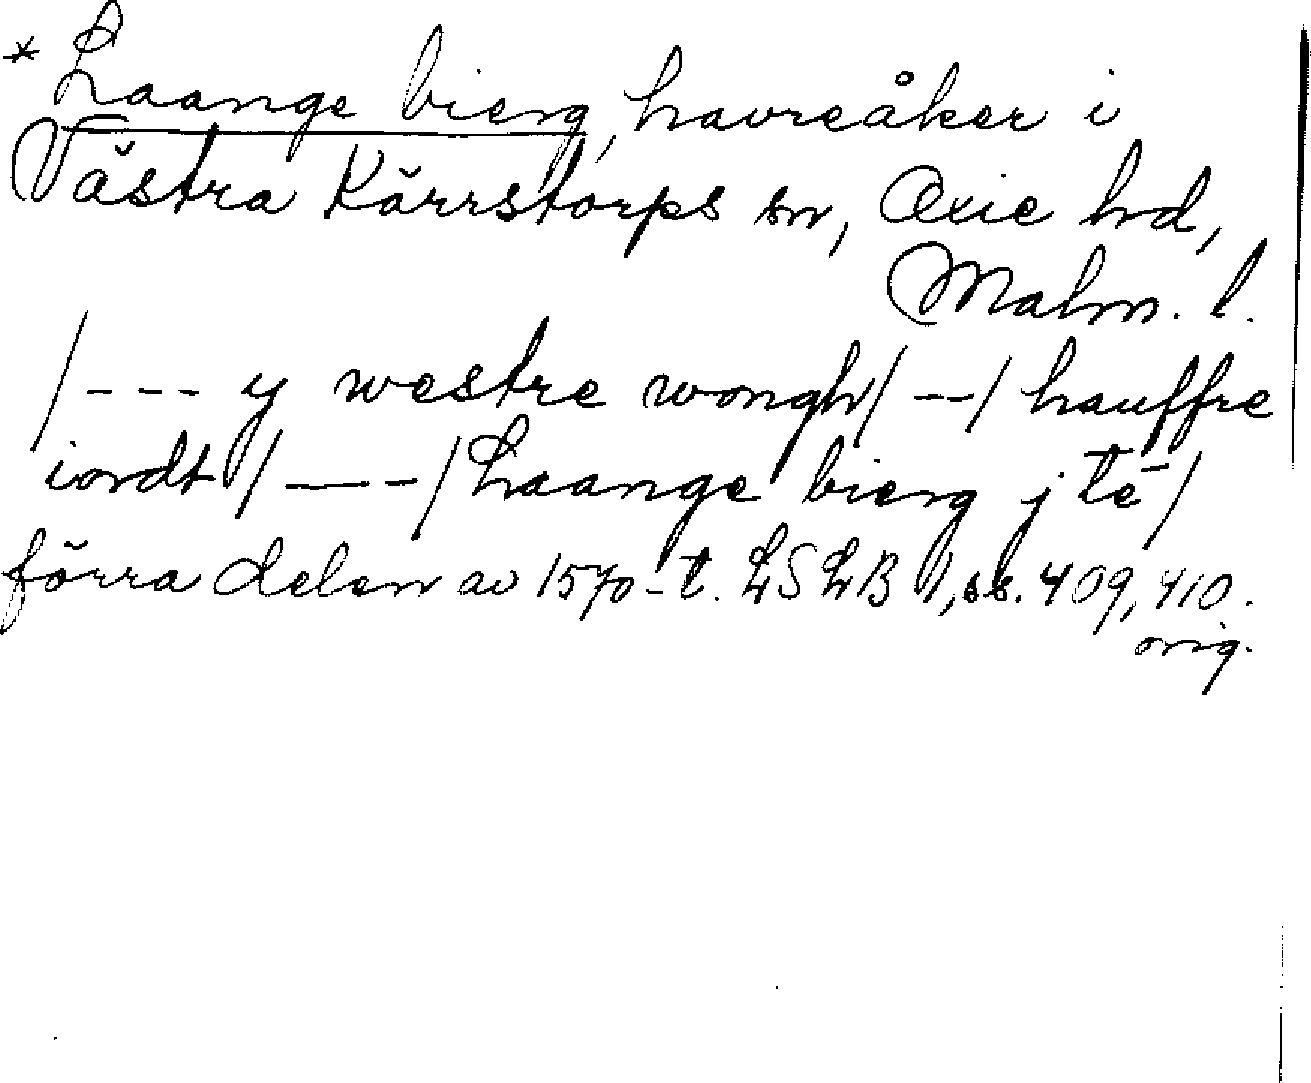 * Laange bierg, havreåker i
Västra Kärrstorps sn, Oxie hd,
Malm. l.
/--- y westre wongh/ --/ hauffre
iordt /---/ Laange bierg j te-/
förra delen av 1570-t. LSLB 1, ss. 409, 410.
orig.